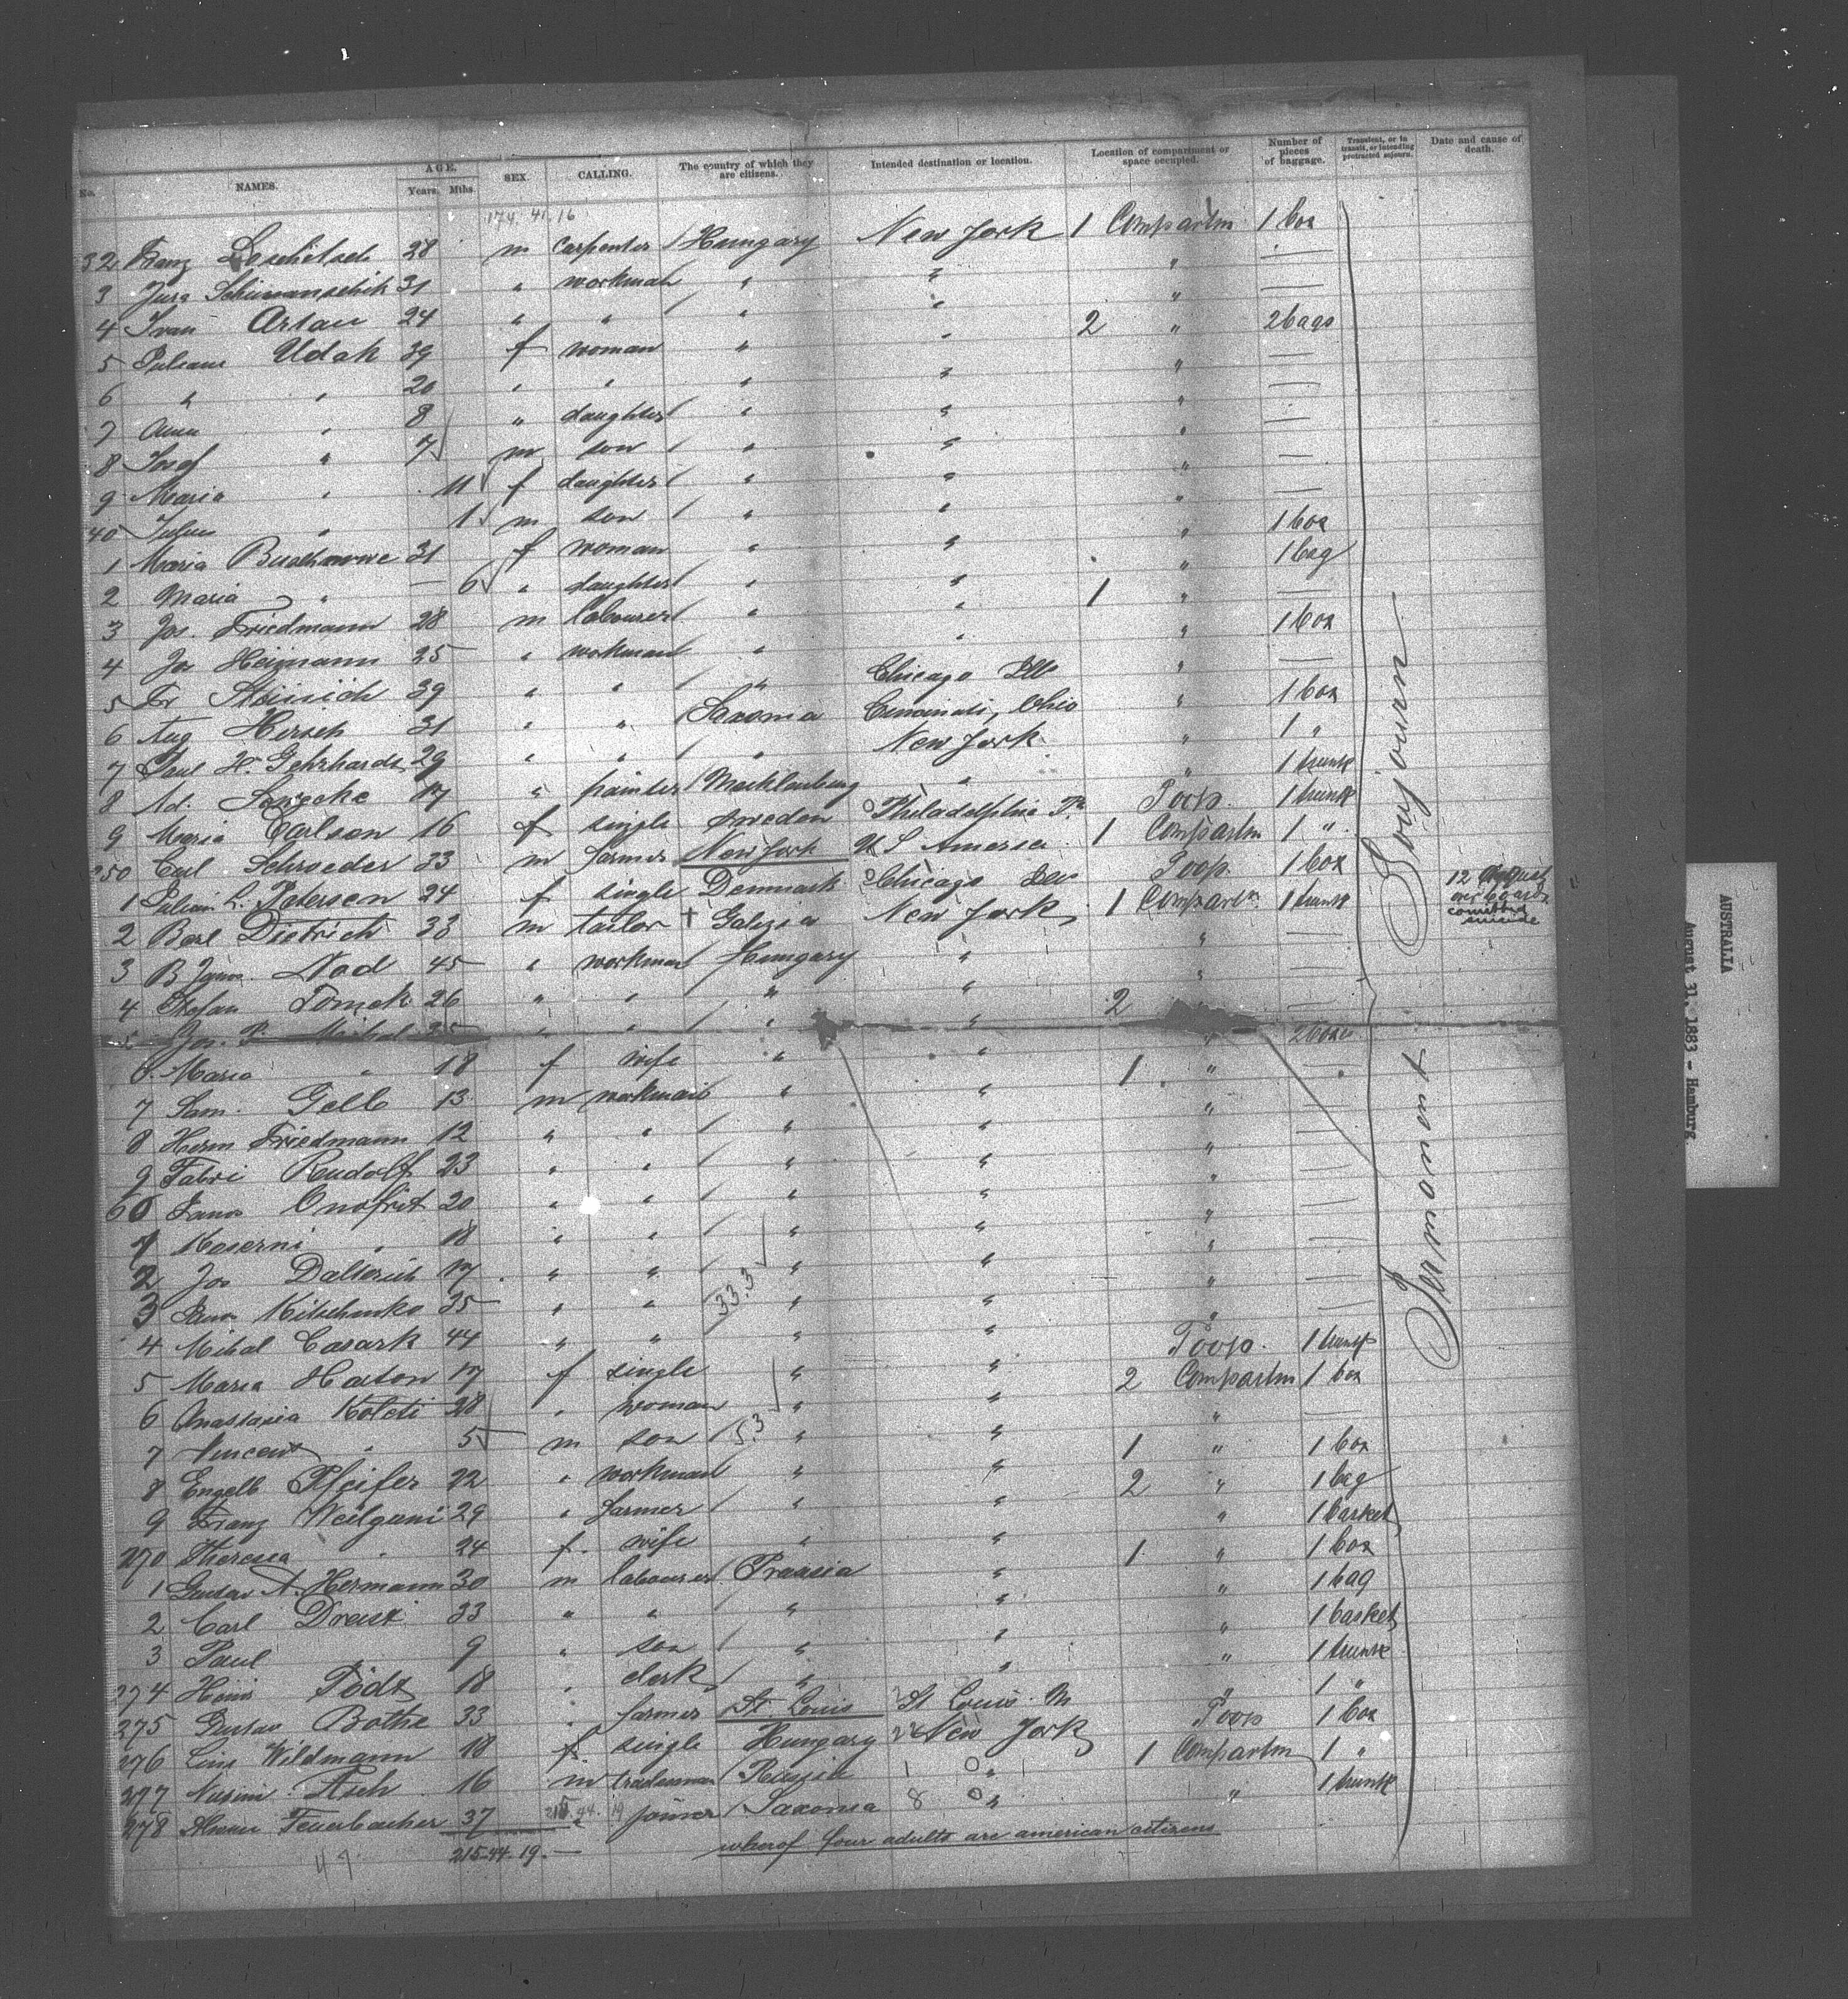 No. NAMES. AGE. Years. Mths. SEX. CALLING. The country of which they are citizens. Intended destination or location. Location of compartment or space occupied. Number of pieces of baggage. Transient, or in transit, or intending protracted sojourn. Date and cause of death.
174. 41. 16
32 Franz 28 m carpenter Hungary New York 1 Compartm 1 box
3 Jura Schimanschik 31 " workman " " " —
4 Ivan Artau 24 " " " " " —
5 Udak 39 f woman " " 2 " 2 bags
6 " " 20 " " " " " —
7 Anna " 8 " daughter " " " —
8 Josef " 7 m son " " " —
9 Maria " 11 f daughter " " " —
40 Julius " 1 m son " " " —
1 Maria 31 f woman " " " 1 box
2 Maria " — 6 " daughter " " " 1 bag
3 Jos. Friedmann 28 m labourer " " 1 " —
4 Jos Heimann 25 " workman " " " 1 box
5 Fr 39 " " " Chicago Ill " —
6 Aug Hirsch 31 " " Saxonia Cincinati, Ohio " 1 box
7 Paul H. Gehrhardt 29 " " " New York " 1 "
8 Ad. 17 " painter Mecklenburg " " 1 trunk
9 Maria Carlson 16 f single Sweden Philadelphia Pa. Poop. 1 trunk
250 Carl Schroeder 33 m farmer New York U S America 1 Compartm 1 "
1 L. Petersen 24 f single Denmark Chicago Ill Poop. 1 box
2 Dietrich 33 m tailor + Galizia New York 1 Compartm 1 trunk 12 August over board comitting suicide
3 B Nad 45 " workman Hungary " " —
4 Stefan Tomek 26 " " " " " —
5 Jos. P. Michel 35 " " " " 2 —
6 Maria " 18 f wife " " " 2 boxes
7 Sam. Gelb 13 m workman " " 1 "
8 Herm Friedmann 12 " " " " " —
9 Fabri Rudolf 23 " " " " " —
60 Janos Onofrit 20 " " " " " —
1 Koserni " 18 " " " " " —
2 Jos 17 " " " " " —
33.3
3 Janos Kitschinko 35 " " " " " —
4 Mihal Casark 44 " " " " " —
5 Maria Haton 17 f single " " Poop. 1 trunk
6 Anastasia Koleti 28 " woman " " 2 Compartm 1 box
7 Vincent " 5 m son " " " —
5.3
8 Engelb Pfeifer 22 " workman " " 1 " 1 box
9 Franz Weilguni 29 " farmer " " 2 " 1 bag
270 Theresa " 24 f. wife " " " 1 basket
1 Gustav A. Hermann 30 m labourer Prussia " 1 " 1 box
2 Carl 33 " " " " " 1 bag
3 Paul 9 " son " " " 1 basket
274 Todt 18 " clerk " " " 1 trunk
275 Gustav Bothe 33 " farmer St. Louis St Louis. M " 1 "
276 Lina Wildmann 18 f. single Hungary New York Poop 1 box
277 Asch 16 m tradesman Russia " 1 Compartm 1 "
278 Feuerbacher 37 " joiner Saxonia " " 1 trunk
215. 44. 19
whereof four adults are american citizens
215-44-19.—
49
Sojourn
Permanent
AUSTRALIA
August 31, 1883 - Hamburg